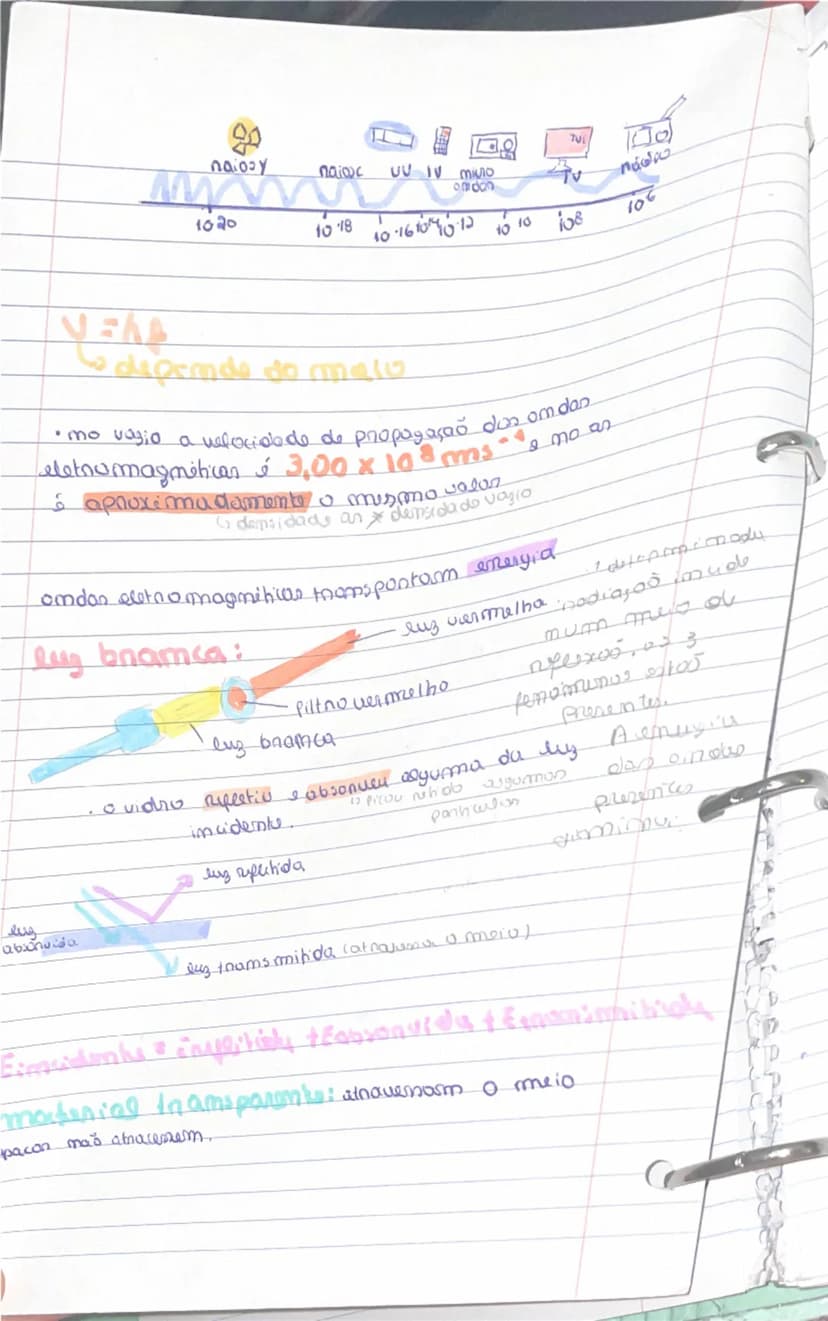 TV
raios γ raios x UV IV micro ondas TV rádio
10 20 10 18 10 16 10 14 10 12 10 10 10 8 10 6
v = λf
↳ depende do meio
• no vazio a velocidade de propagação das ondas
eletromagnéticas é 3,00 × 10⁸ ms⁻¹ e no ar
é aproximadamente o mesmo valor
↳ densidade ar ≠ densidade vazio
ondas eletromagnéticas transportam energia
luz branca:
luz vermelha
filtro vermelho
luz branca
determinada
radiação incide
num meio de
reflexão, os 3
fenómenos estão
presentes.
A energia
das ondas
presentes
diminui.
. o vidro refletiu e absorveu alguma da luz
incidente.
↳ ficou retido algumas
partículas
luz refletida
luz
absorvida
luz transmitida (atravessa o meio)
Eincidente = Erefletida + Eabsorvida + Etransmitida
material transparente: atravessam o meio
opacos não atravessam.